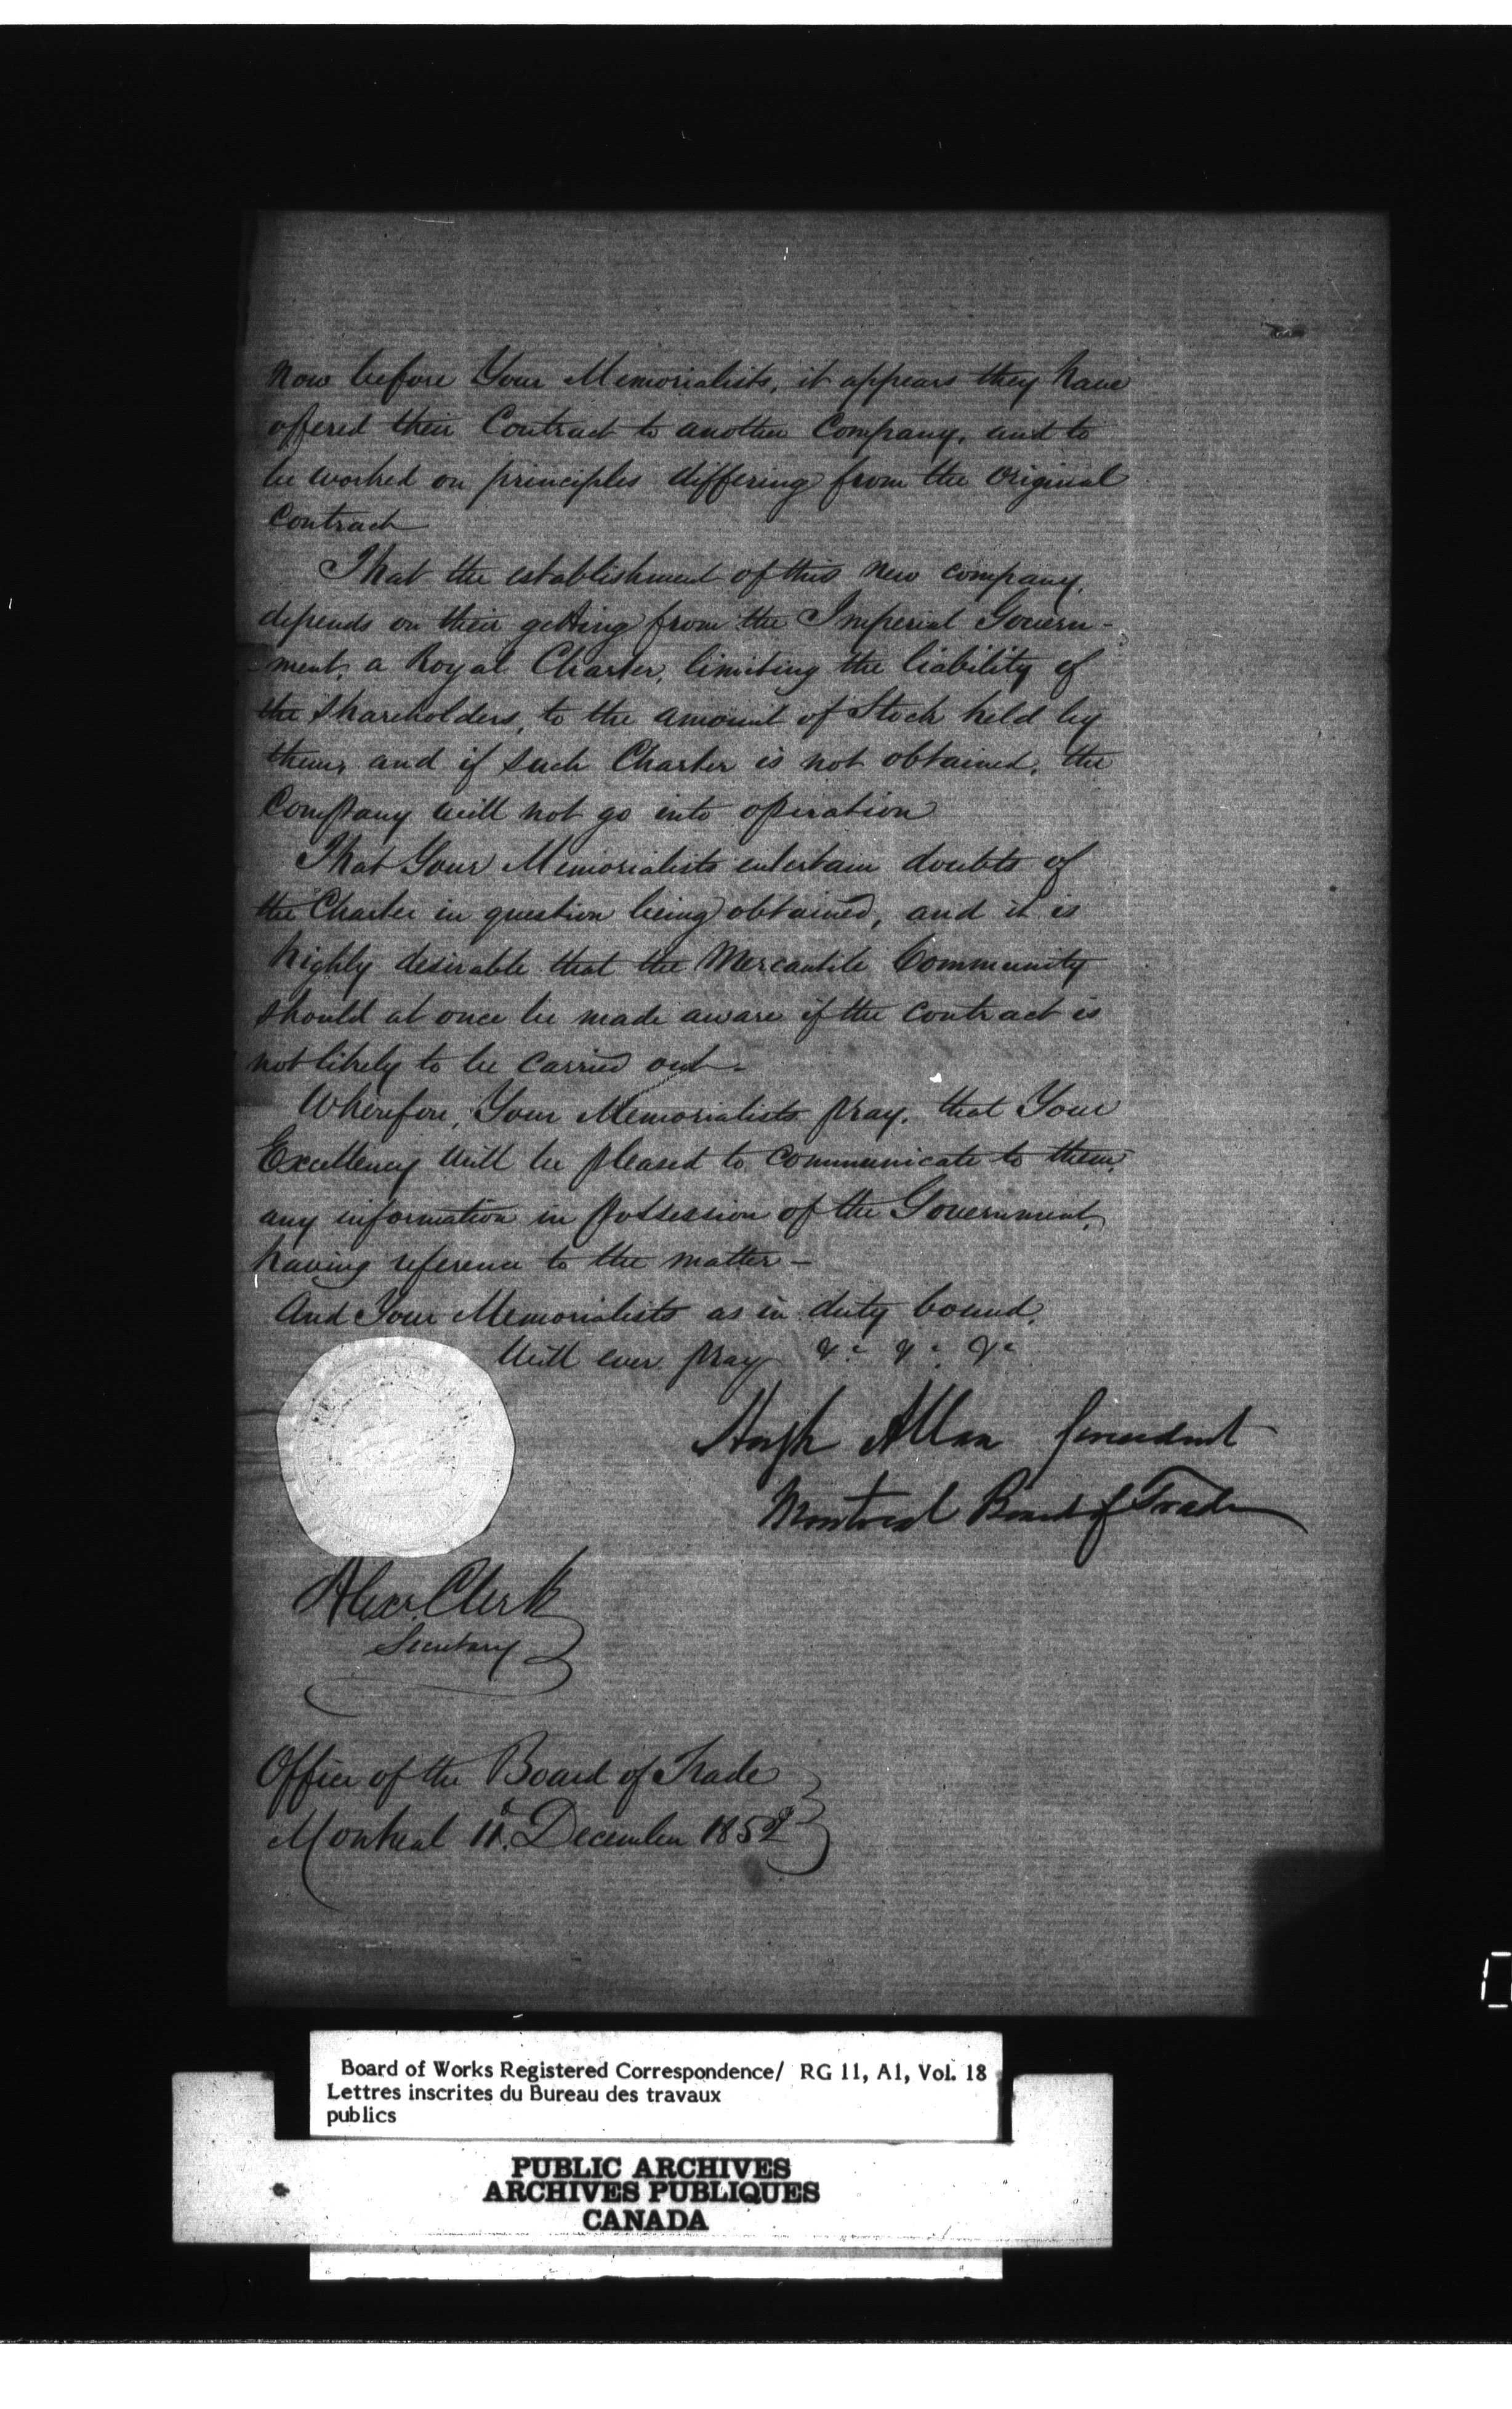 now before Your Memorialists, it appears they have
offered their Contract to another Company, and to
be worked on principles differing from the original
Contract
That the establishment of this new company,
depends on their getting from the Imperial Govern-
ment, a Royal Charter, limiting the liability of
the Shareholders, to the amount of Stock held by
them, and if such Charter is not obtained, the
Company will not go into operation
That Your Memorialists entertain doubts of
the Charter in question being obtained, and it is
highly desirable that the Mercantile Community
should at once be made aware if the contract is
not likely to be carried out.
Wherefore, Your Memorialists pray, that Your
Excellency will be pleased to communicate to them,
any information in possession of the Government,
having reference to the matter —
And Your Memorialists as in duty bound,
Will ever pray &c &c &c
Hugh Allan President
Montreal Board of Trade
Alexr. Clerk
Secretary
Office of the Board of Trade
Montreal 11. December 1852
Board of Works Registered Correspondence/ RG 11, A1, Vol. 18
Lettres inscrites du Bureau des travaux
publics
PUBLIC ARCHIVES
ARCHIVES PUBLIQUES
CANADA